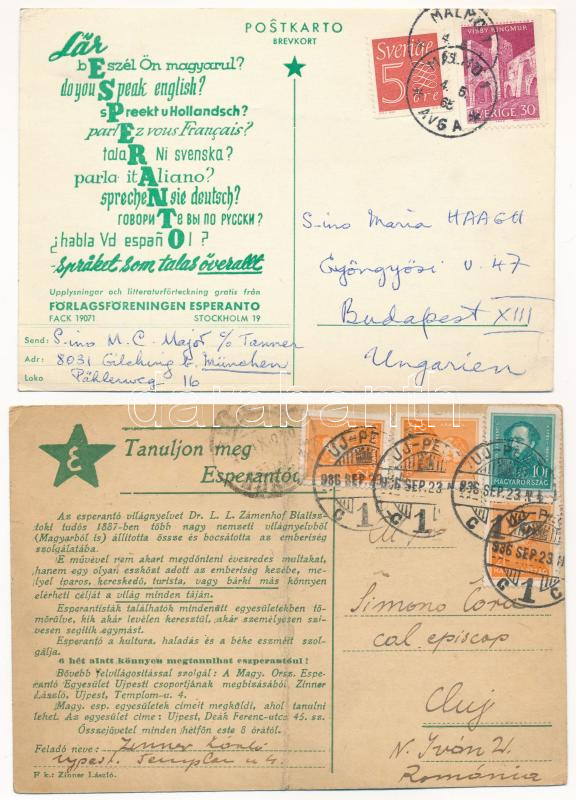 Lär
beszél Ön magyarul?
do you Speak english?
sPreekt u Hollandsch?
parlEz vous Français?
talaR Ni svenska?
parla itAliano?
sprecheN sie deutsch?
говориТе вы по русски?
¿habla Vd españOl?
-språket som talas överallt
Upplysningar och litteraturförteckning gratis från
FÖRLAGSFÖRENINGEN ESPERANTO
FACK 19071 STOCKHOLM 19
Send: S-ino M. C. Major c/o Tanner
Adr: 8031 Gilching b. München
Loko Pählerweg 16
POŜTKARTO
BREVKORT
Sverige
5 öre
VISBY RINGMUR
SVERIGE 30
MALMÖ 1
AVGA
S-ino Maria HAAGH
Gyöngyösi u. 47
Budapest XIII
Ungarien
darabanth
Tanuljon meg
Esperantóul
Az esperantó világnyelvet Dr. L. L. Zámenhof Bialisz-
toki tudós 1887-ben több nagy nemzeti nyelvyelvből
(Magyarból is) állította össze és bocsátotta az emberiség
szolgálatába.
E művével nem akart megdönteni évezredes multakat,
hanem egy olyan eszközt adott az emberiség kezébe, me-
lyel iparos, kereskedő, turista, vagy bárki más könnyen
elérheti célját a világ minden táján.
Esperantisták találhatók mindenütt egyesületekben tö-
mörülve, kik akár levélen keresztül, akár személyesen szí-
vesen segítik egymást.
Esperanto a kultura, haladás és a béke eszméit szol-
gálja.
6 hét alatt könnyen megtanulhat eszperantóul!
Bővebb felvilágosítással szolgál: A Magy. Orsz. Espe-
rantó Egyesület Ujpesti csoportjának megbizásából Zinner
László, Ujpest, Templom-u. 4.
Magy. esp. egyesületek címeit megküldi, ahol tanulni
lehet. Az egyesület címe: Ujpest, Deák Ferenc-utca 45. sz.
Összejövetel minden hétfőn este 8 órától.
Feladó neve: Zinner László
Ujpest. Templom u 4.
F k.: Zinner László.
UJ-PE
936 SEP. 23
C 1
UJ-PE
936 SEP. 23
C 1
UJ-PE
936 SEP. 23
C 1
936 SEP. 23
C 1
10f
MAGYARORSZÁG
Simono Čora
cal episcop
Cluj
N. Iván 21.
Románia